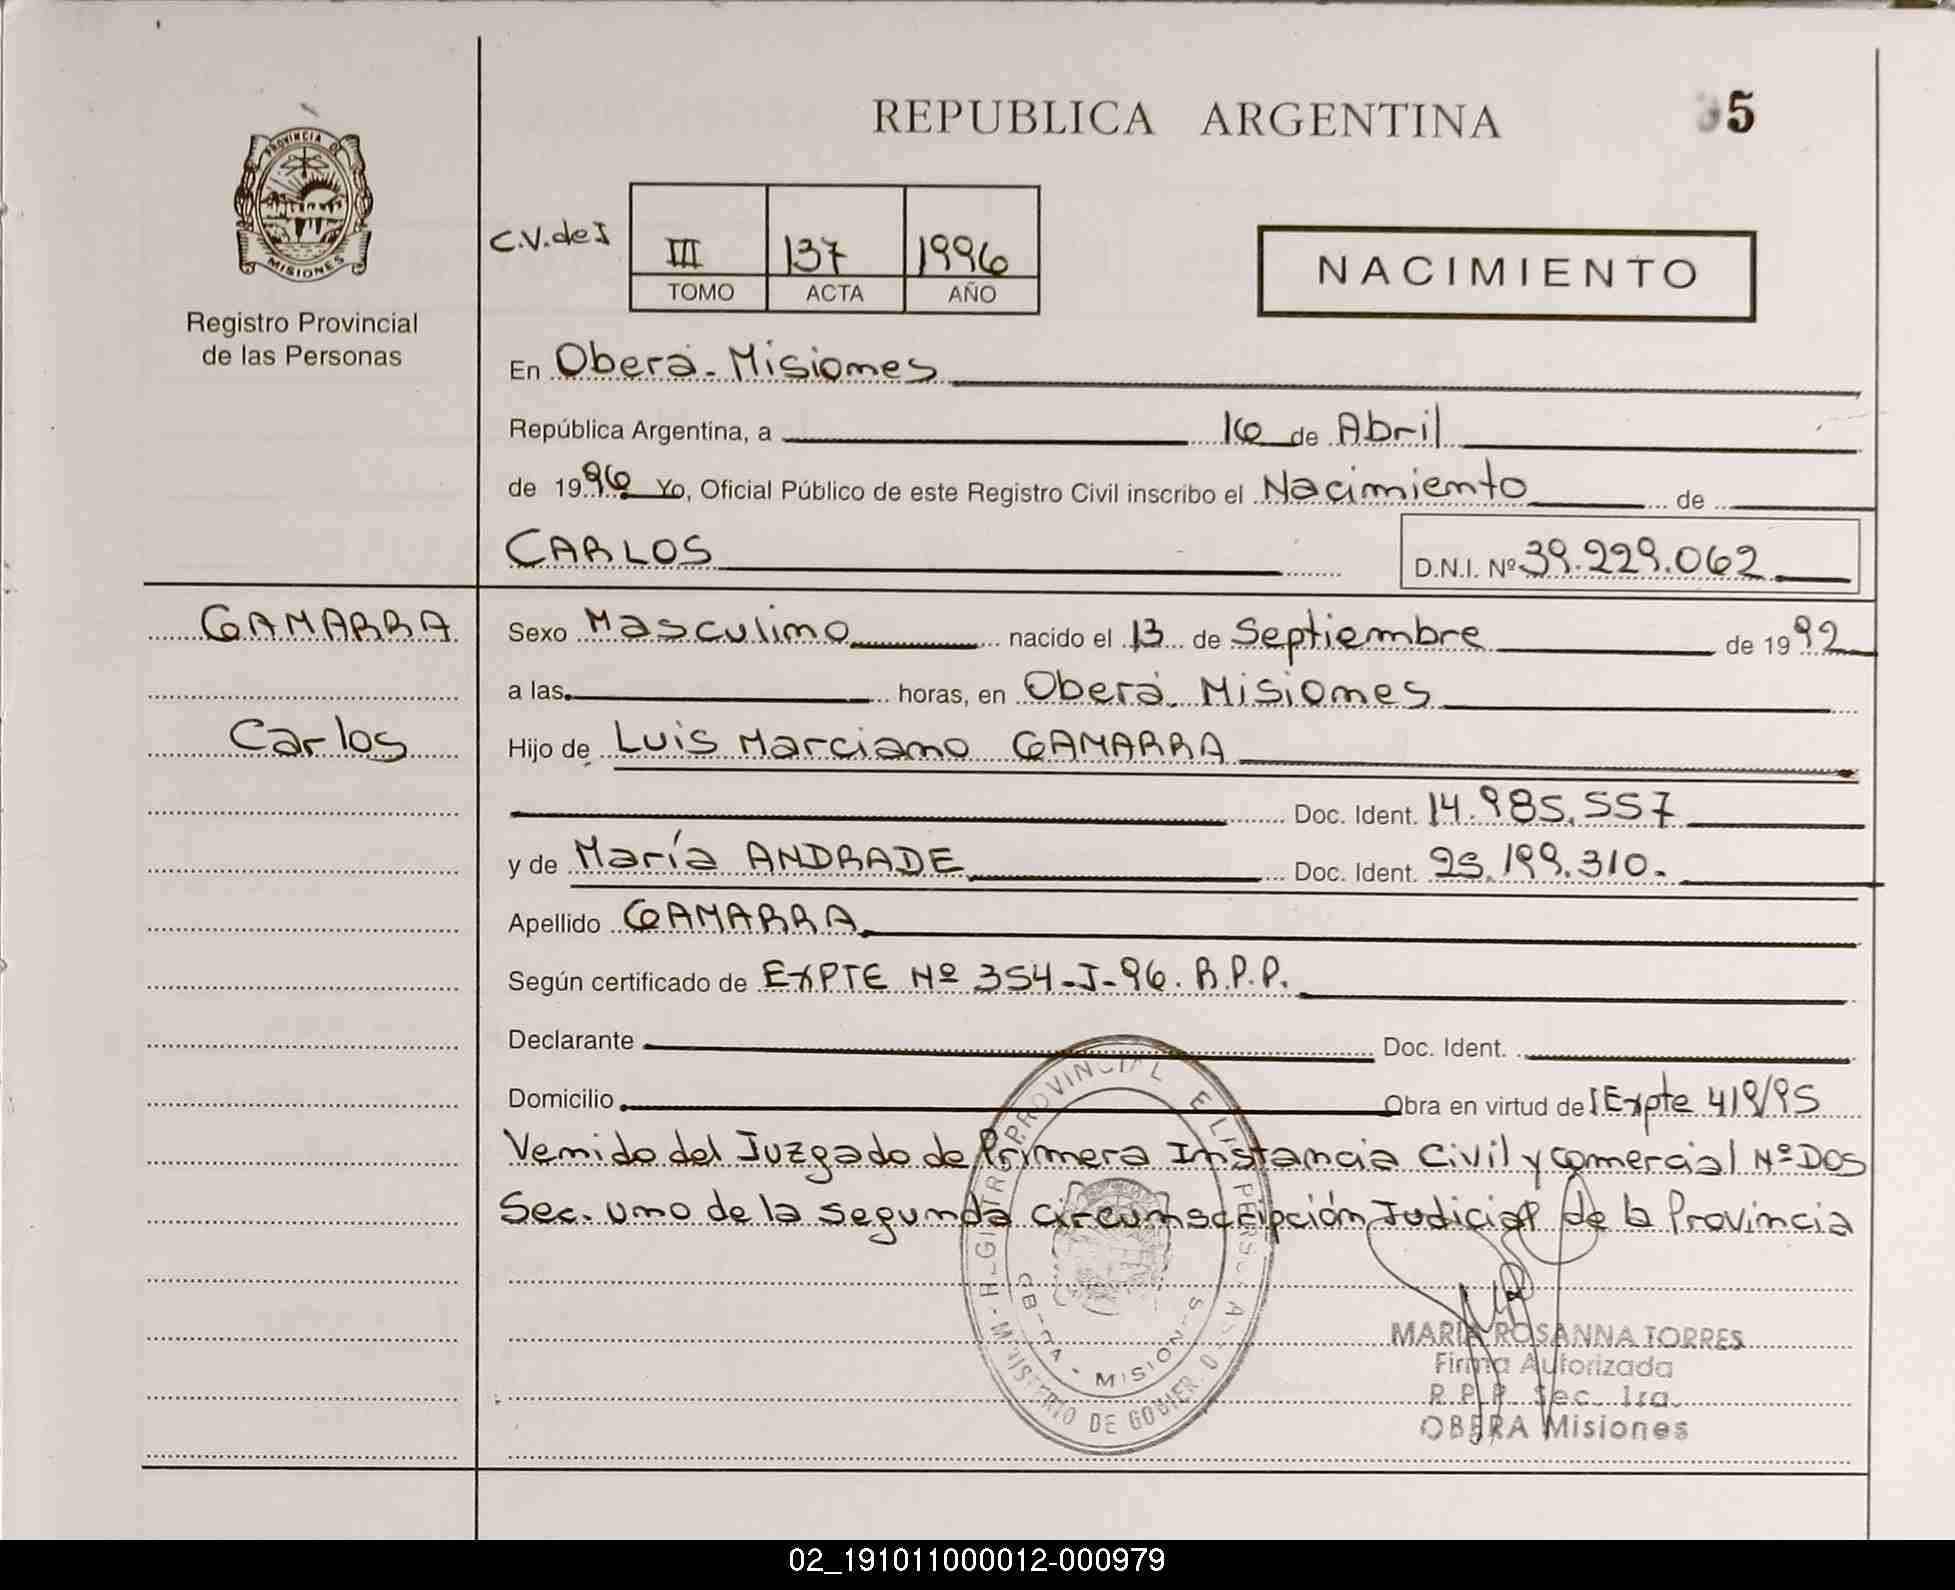 REPUBLICA ARGENTINA
5
PROVINCIA DE
MISIONES
Registro Provincial
de las Personas
C.V. de I
III 137 1996
TOMO ACTA AÑO
NACIMIENTO
En Oberá - Misiones
República Argentina, a 16 de Abril
de 1996 Yo, Oficial Público de este Registro Civil inscribo el Nacimiento de
CARLOS D.N.I. Nº 39.229.062
GAMARRA
Carlos
Sexo Masculino nacido el 13 de Septiembre de 1992
a las horas, en Oberá. Misiones
Hijo de Luis Marciano GAMARRA
Doc. Ident. 14.985.557
y de María ANDRADE Doc. Ident. 25.199.310.
Apellido GAMARRA
Según certificado de EXPTE Nº 354-J-96. R.P.P.
Declarante Doc. Ident.
Domicilio Obra en virtud del Expte 419/95
Venido del Juzgado de Primera Instancia Civil y comercial Nº DOS
Sec. uno de la segunda circunscripción Judicial de la Provincia
MARIA ROSANNA TORRES
Firma Autorizada
R.P.P. Sec. 1ra.
OBERA Misiones
02_191011000012-000979